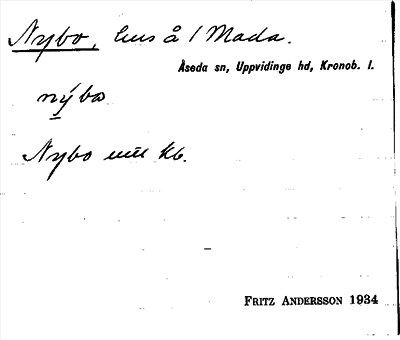 Nybo, hus å 1 Mada.
Åseda sn, Uppvidinge hd, Kronob. l.
nýbo
Nybo uttl kb.
Fritz Andersson 1934